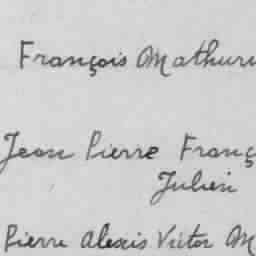 François Mathuri
Jean Pierre Franç
Julien
Pierre Alexis Victor M